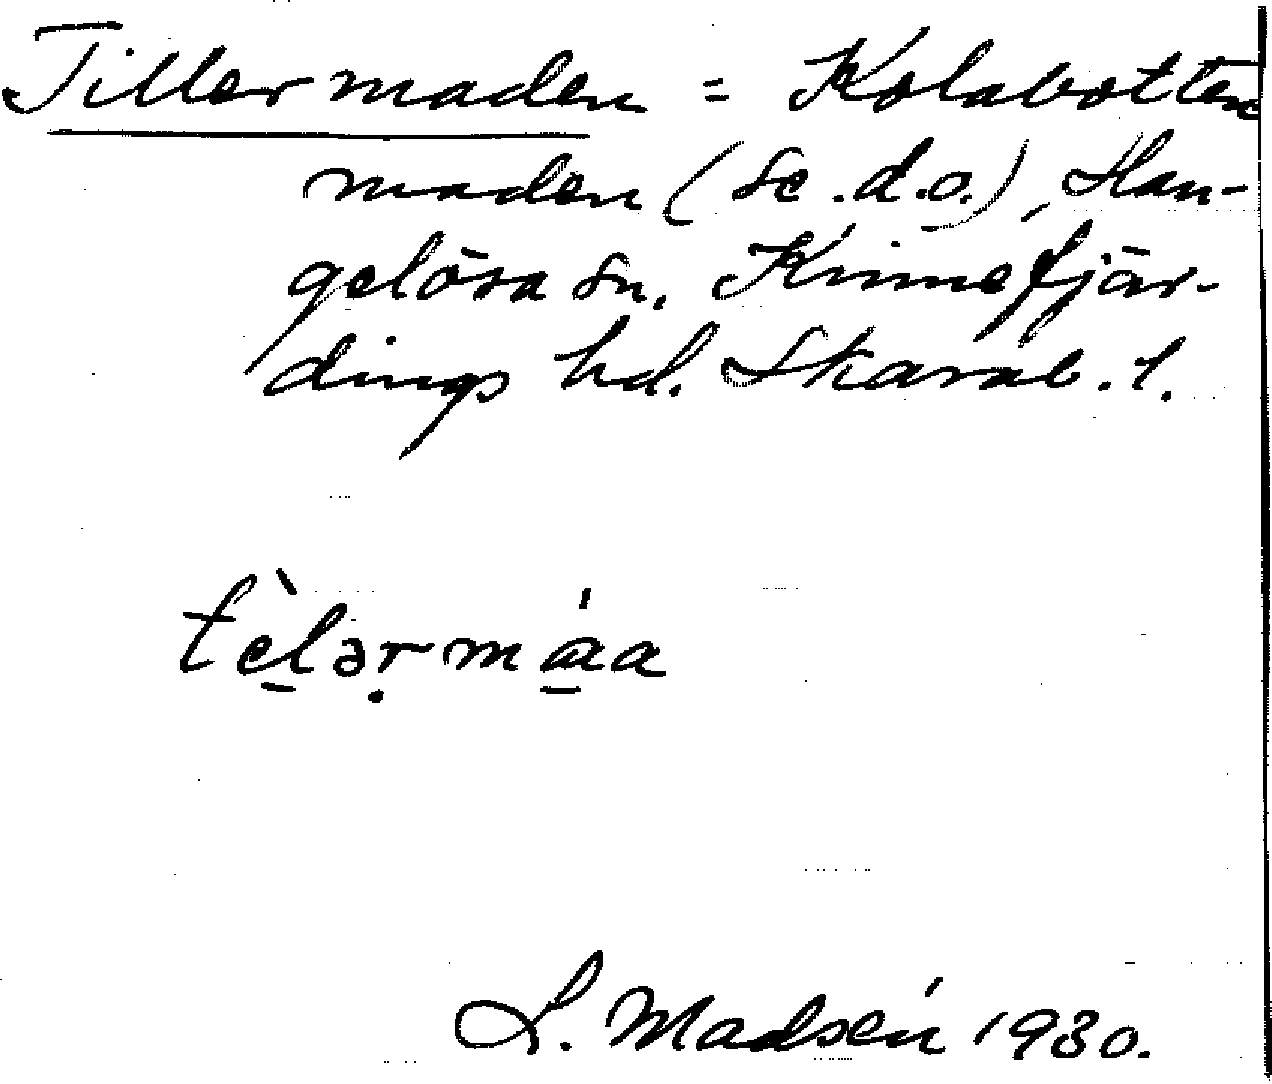 Tillermaden = Kolabotten
maden (se.d.o.), Han-
gelösa sn. Kinnefjär-
dings hd. Skarab. l.
tèlərmáa
L. Madsén 1930.